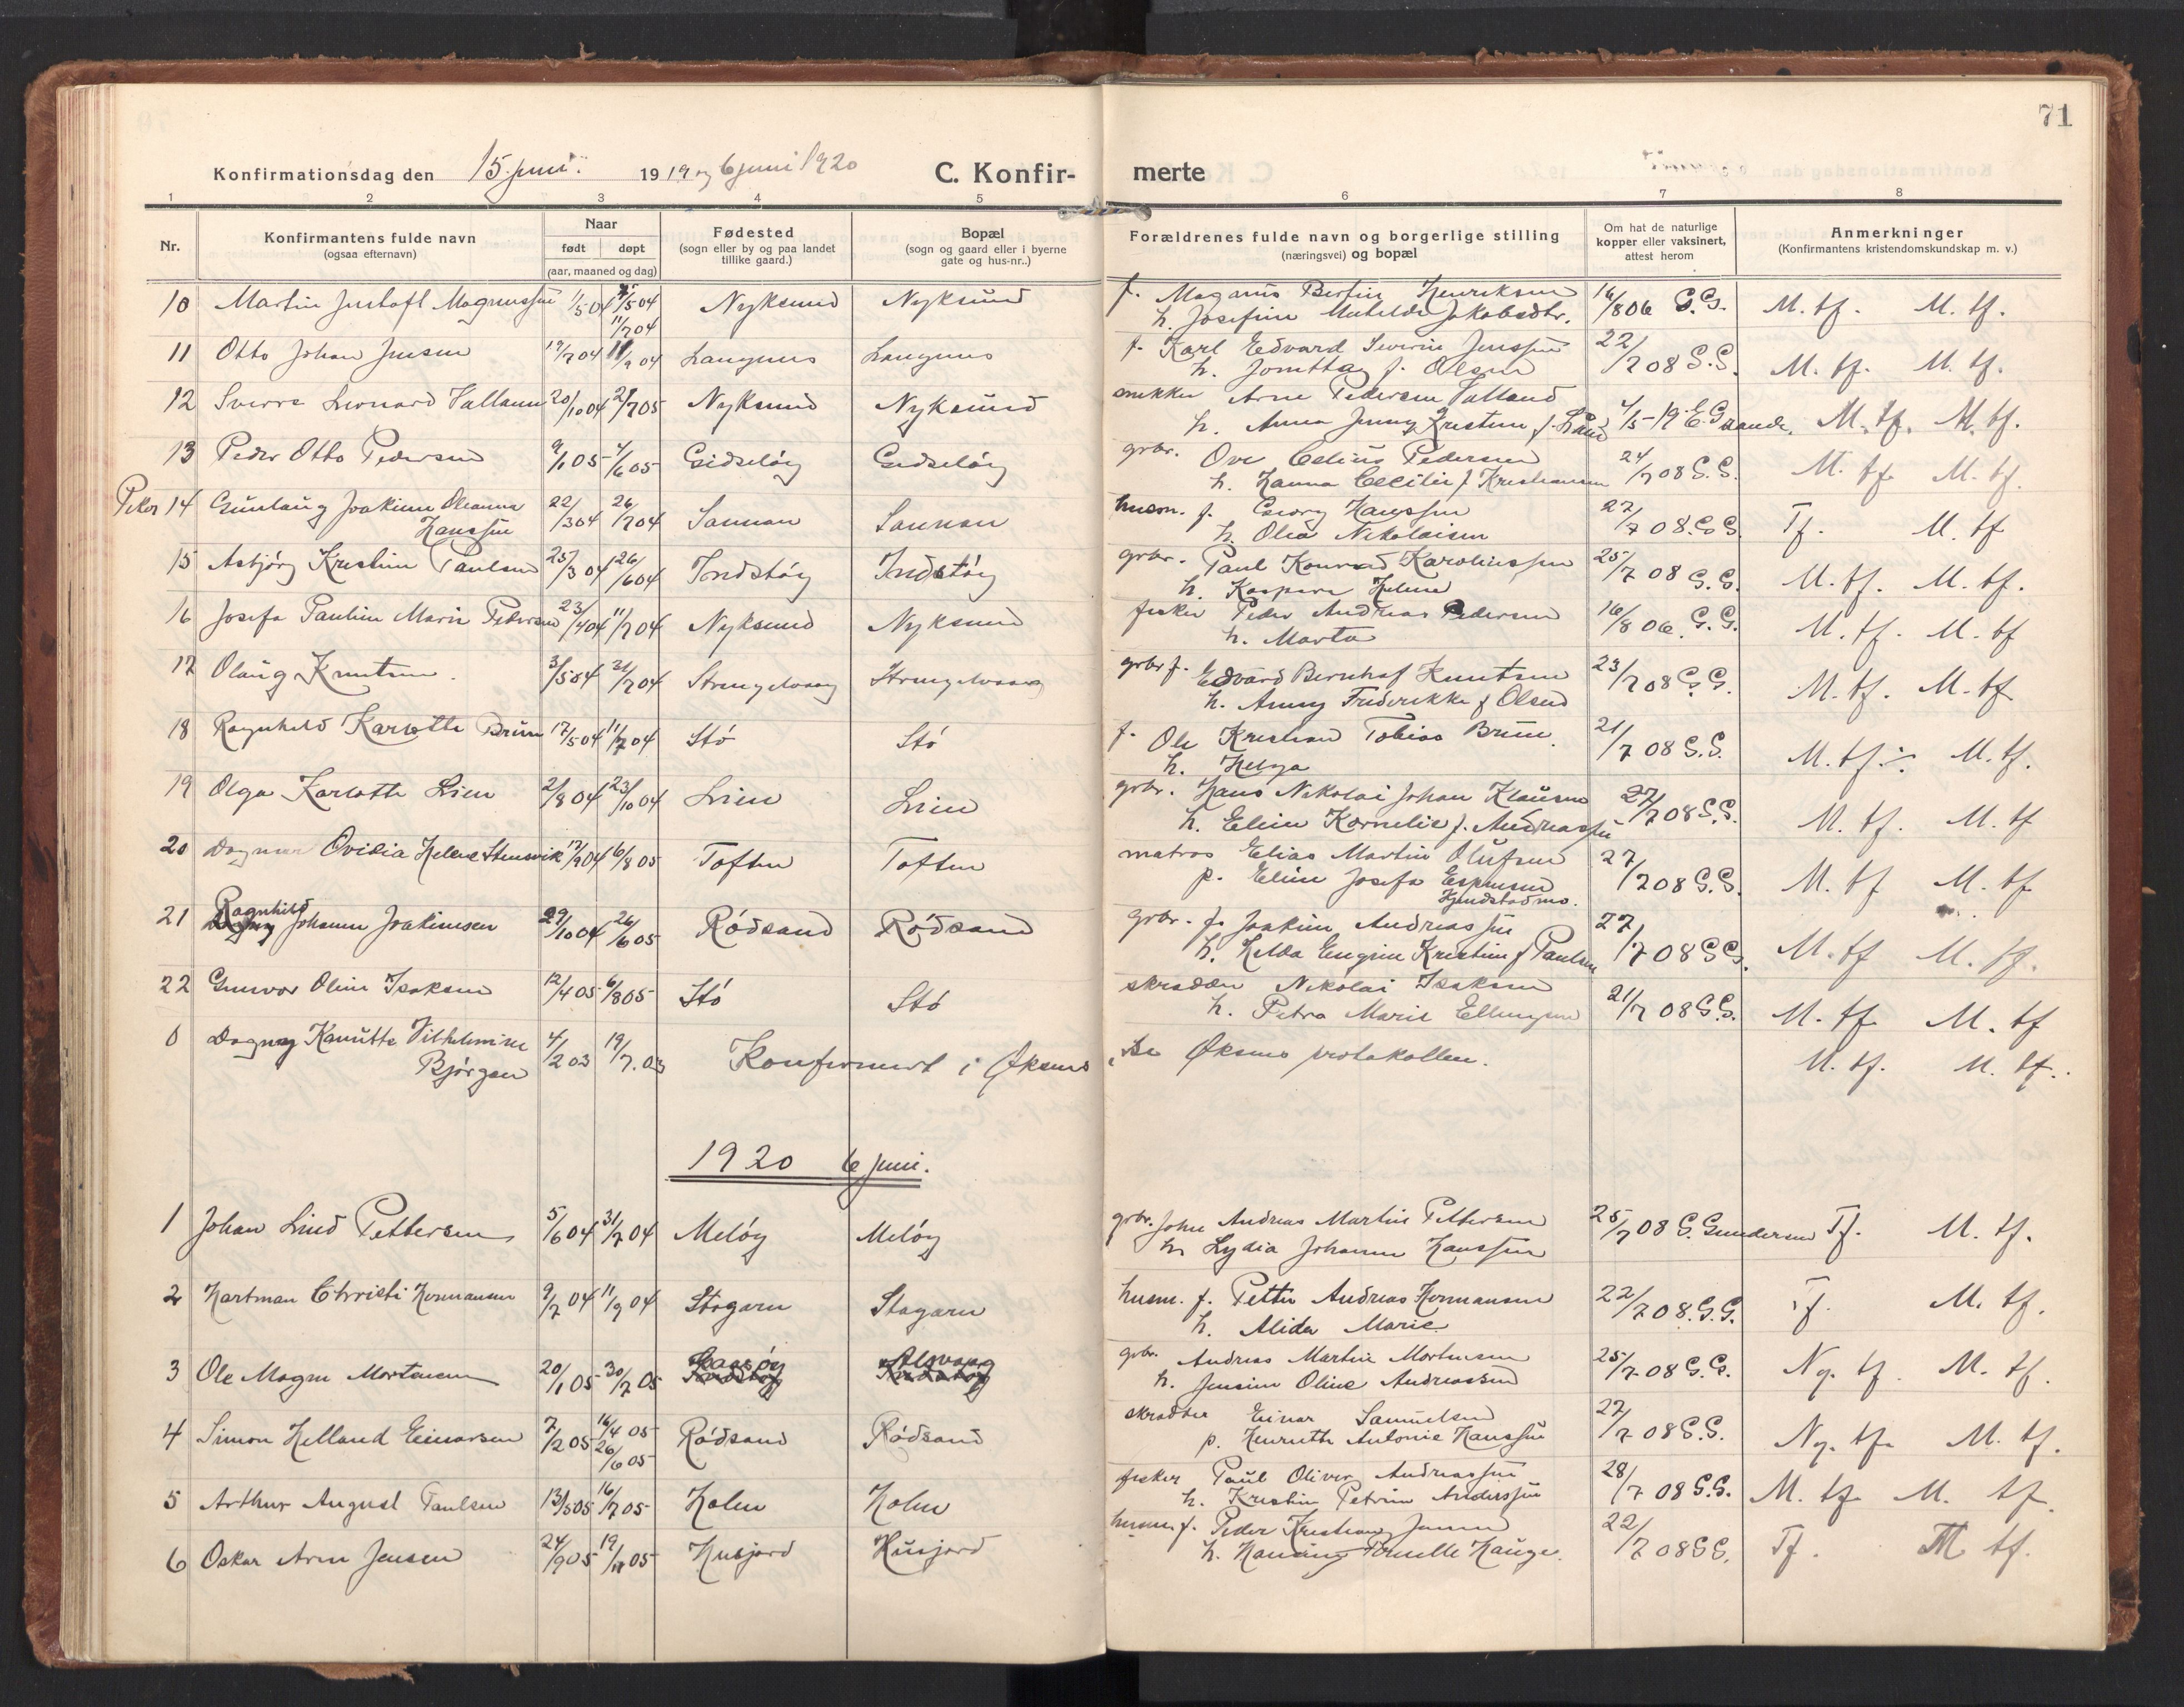 71
Konfirmationsdag den 15. juni 1919 og 6 juni 1920 C. Konfir- merte
1 2 3 4 5 6 7 8
Nr.
Konfirmantens fulde navn
(ogsaa efternavn)
Naar
født døpt
(aar, maaned og dag)
Fødested
(sogn eller by og paa landet
tillike gaard.)
Bopæl
(sogn og gaard eller i byerne
gate og hus-nr..)
Forældrenes fulde navn og borgerlige stilling
(næringsvei) og bopæl
Om hat de naturlige
kopper eller vaksinert,
attest herom
Anmerkninger
(Konfirmantens kristendomskundskap m. v.)
10 Martin Justoft Magnussen 1/5 04 /5 04 Nyksund Nyksund f. Magnus Bertin Henriksen 16/8 06 G.G. M. tf. M. tf.
11/7 04 h. Josefine Matilde Jakobsdtr.
11 Otto Johan Jensen 19/7 04 11/9 04 Langnes Langnes f. Karl Edvard Severin Jenssen 22/7 08 G.G. M. tf. M. tf.
h. f. Olsen
12 Sverre Leonard Valland 20/10 04 2/7 05 Nyksund Nyksund snekker Arne Pedersen Valland 4/5-19 E. Grande. M. tf. M. tf.
h. Anna Jenny Kristine f. Lund
13 Peder Otto Pedersen 9/1 05 4/6 05 Gidseløy Gidseløy grbr. Ove Celius Pedersen 24/7 08 G.G. M. tf M. tf.
h. Hanna Cecilie f Kristiansen
Piker 14 Gunlaug Joakime Oleanna 22/3 04 26/7 04 Sannan Sannan husm. f. Georg Hanssen 27/7 08. G.G. Tf. M. tf
Hanssen h. Olea Nikolaisen
15 Asbjørg Kristine Paulsen 25/3 04 26/6 04 Indstøy Indstøy grbr. Paul Konrad Karoliussen 25/7 08 G.G. M. tf. M. tf.
h. Kaspara Helene
16 Josefa Pauline Marie Pedersen 23/4 04 11/7 04 Nyksund Nyksund fisker Peder Andreas Pedersen 16/8 06. G.G. M. tf. M. tf
h. Marta
17 Olaug Knutsen. 3/5 04 31/7 04 Strengelvaag Strengelvaag grbr f. Edvard Bernhof Knutsen 23/7 08 G.G. M. tf. M. tf
h. Anny Frederikke f Olsen
18 Ragnhild Karlotte Brun 17/5 04 11/7 04 Stø Stø f. Ole Kristian Tobias Brun. 21/7 08 G.G. M. tf. M. tf.
h. Helga
19 Olga Karlotte Lien 2/8 04 23/10 04 Lien Lien grbr. Hans Nikolai Johan Klausen 27/7 08 G.G. M. tf. M. tf
h. Eline Kornelie f. Andreassen
20 Dagmar Ovidia Helene Stensvik 17/9 04 6/8 05 Toften Toften matros Elias Martin Olufsen 27/7 08 G.G. M. tf M. tf
p. Eline Josefa Espensen
21 Ragnhild Johanne Joakimsen 29/10 04 26/6 05 Rødsand Rødsand grbr. f. Joakim Andreassen 27/7 08 G.G. M. tf M. tf.
h. Helda Engine Kristine f Paulsen
22 Gunvor Oline Isaksen 12/4 05 6/8 05 Stø Stø skrædder Nikolai Isaksen 21/7 08 G.G. M. tf M. tf
h. Petra Marie Ellingsen
0 Dagny Kanutte Vilhelmine 4/2 03 19/7. 03 Konfirmert i Øksnes, se Øksnes protokollen. M. tf. M. tf.
Bjørgen
1920 6 juni.
1 Johan Lind Pettersen 5/6 04 31/7 04 Meløy Meløy grbr. John Andreas Martin Pettersen 25/7 08 G. Gundersen Tf. M. tf.
h. Lydia Johanne Hanssen
2 Hartman Christi Hermansen 9/7 04 11/9 04 Stagarn Stagarn husm. f. Petter Andreas Hermansen 22/7 08. G.G. Tf. M. tf.
h. Alida Marie
3 Ole Magne Mortensen 20/1 05 30/7 05 Alsvaag grbr. Andreas Martin Mortensen 25/7 08 G.G. Ng. tf. M. tf.
h. Jensine Oline Andreassen
4 Simon Helland Einarsen 7/2 05 16/4 05 Rødsand Rødsand skrædder Einar Samuelsen 27/7 08 G.G. Ng. tf. M. tf.
26/6 05 p. Henrutte Antonie Hanssen
5 Arthur August Paulsen 13/5 05 16/7 05 Holm Holm fisker Paul Oliver Andreassen 28/7 08 G.G. M. tf M. tf.
h. Kristine Petrine Anderssen
6 Oskar Arne Jensen 24/9 05 19/11 05 Husjord Husjord husm f. Peder Kristian Jensen 22/7 08 G.G. Tf. M tf.
h. Hansine Pernelle Hauge.